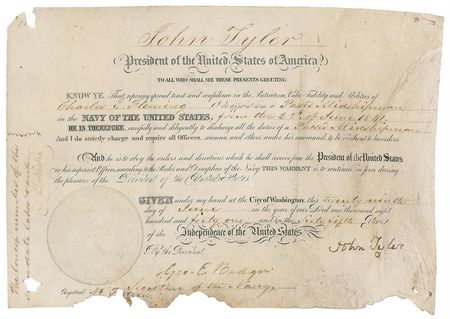 John Tyler
President of the United States of America
TO ALL WHO SHALL SEE THESE PRESENTS GREETING:
KNOW YE, That reposing special trust and confidence in the Patriotism, Valor, Fidelity and Abilities of
Charles Fleming I appoint him a Passed Midshipman
in the NAVY OF THE UNITED STATES, from the of June 1841.
HE IS THEREFORE, carefully and diligently to discharge all the duties of a Passed Midshipman
And I do strictly charge and require all Officers, seamen, and others, under his command, to be obedient to his orders.
AND he is to obey the orders and directions which he shall receive from the President of the United States
or his superior Officers, according to the Rules and Discipline of the Navy. THIS WARRANT is to continue in force during
the pleasure of the President of the United States.
GIVEN under my hand at the City of Washington, this twenty ninth
day of June in the year of our Lord one thousand eight
hundred and forty one and in the Sixty fifth Year of the
Independence of the United States.
By the President, John Tyler
Geo. E. Badger
Registered Secretary of the Navy